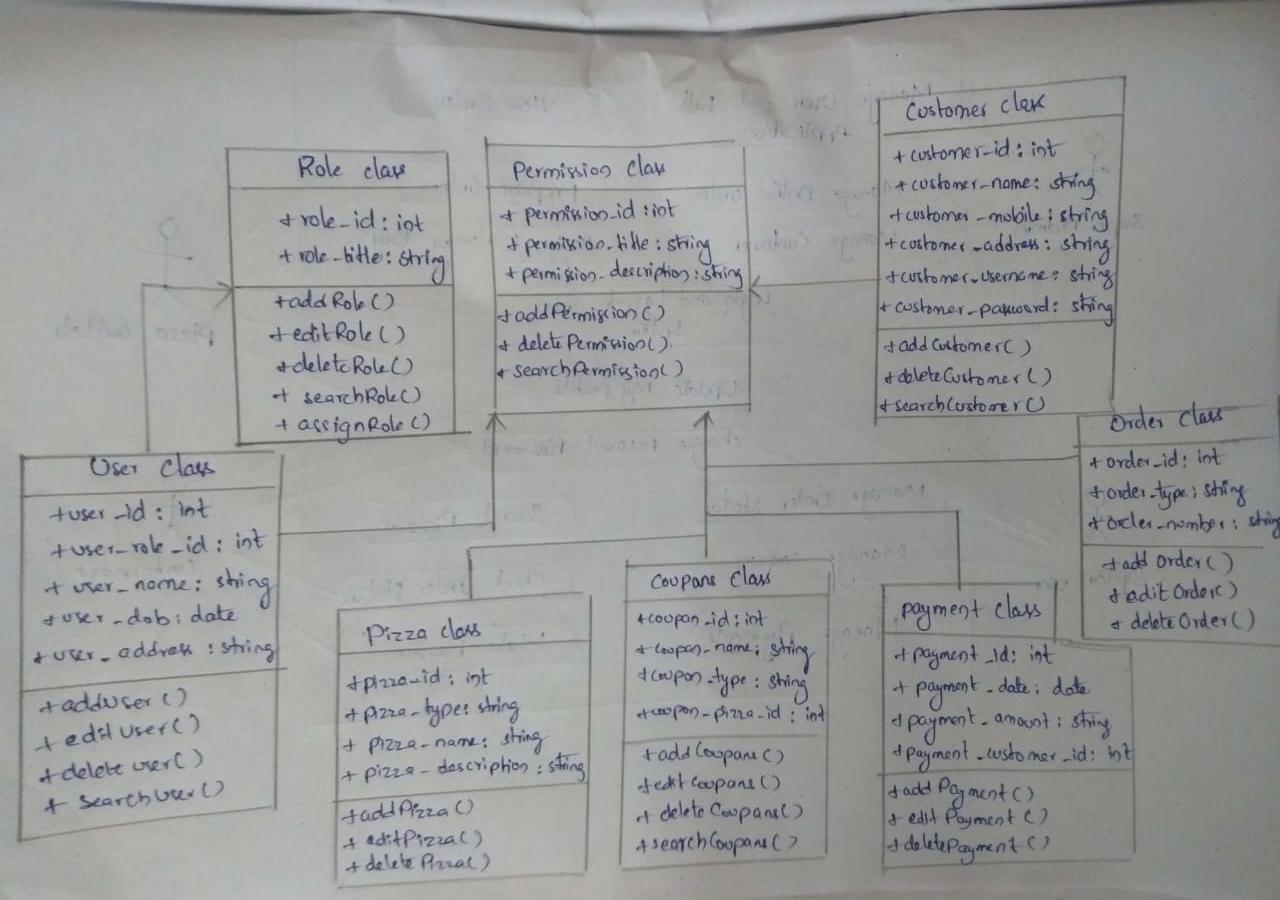 Role class
+ role_id : int
+ role_title : string
+ addRole()
+ editRole()
+ deleteRole()
+ searchRole()
+ assignRole()
Permission class
+ permission_id : int
+ permission_title : string
+ permission_description : string
+ addPermission()
+ deletePermission()
+ searchPermission()
Customer class
+ customer_id : int
+ customer_name : string
+ customer_mobile : string
+ customer_address : string
+ customer_username : string
+ customer_password : string
+ addCustomer()
+ deleteCustomer()
+ searchCustomer()
User class
+ user_id : int
+ user_role_id : int
+ user_name : string
+ user_dob : date
+ user_address : string
+ addUser()
+ editUser()
+ deleteUser()
+ searchUser()
Pizza class
+ pizza_id : int
+ pizza_type : string
+ pizza_name : string
+ pizza_description : string
+ addPizza()
+ editPizza()
+ deletePizza()
Coupans class
+ coupon_id : int
+ coupan_name : string
+ coupon_type : string
+ coupon_pizza_id : int
+ addCoupans()
+ edit Coupans()
+ delete Coupans()
+ searchCoupans()
payment class
+ payment_id : int
+ payment_date : date
+ payment_amount : string
+ payment_customer_id : int
+ add Payment()
+ edit Payment()
+ deletePayment()
Order class
+ order_id : int
+ order_type : string
+ order_number : string
+ add Order()
+ edit Order()
+ delete Order()